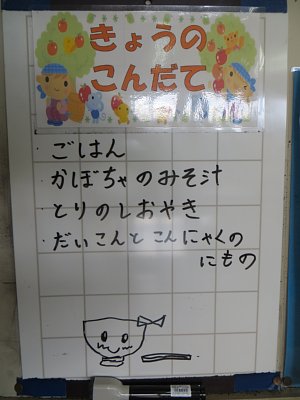 きょうの
こんだて
・ごはん
・かぼちゃのみそ汁
・とりのしおやき
・だいこんとこんにゃくの
にもの